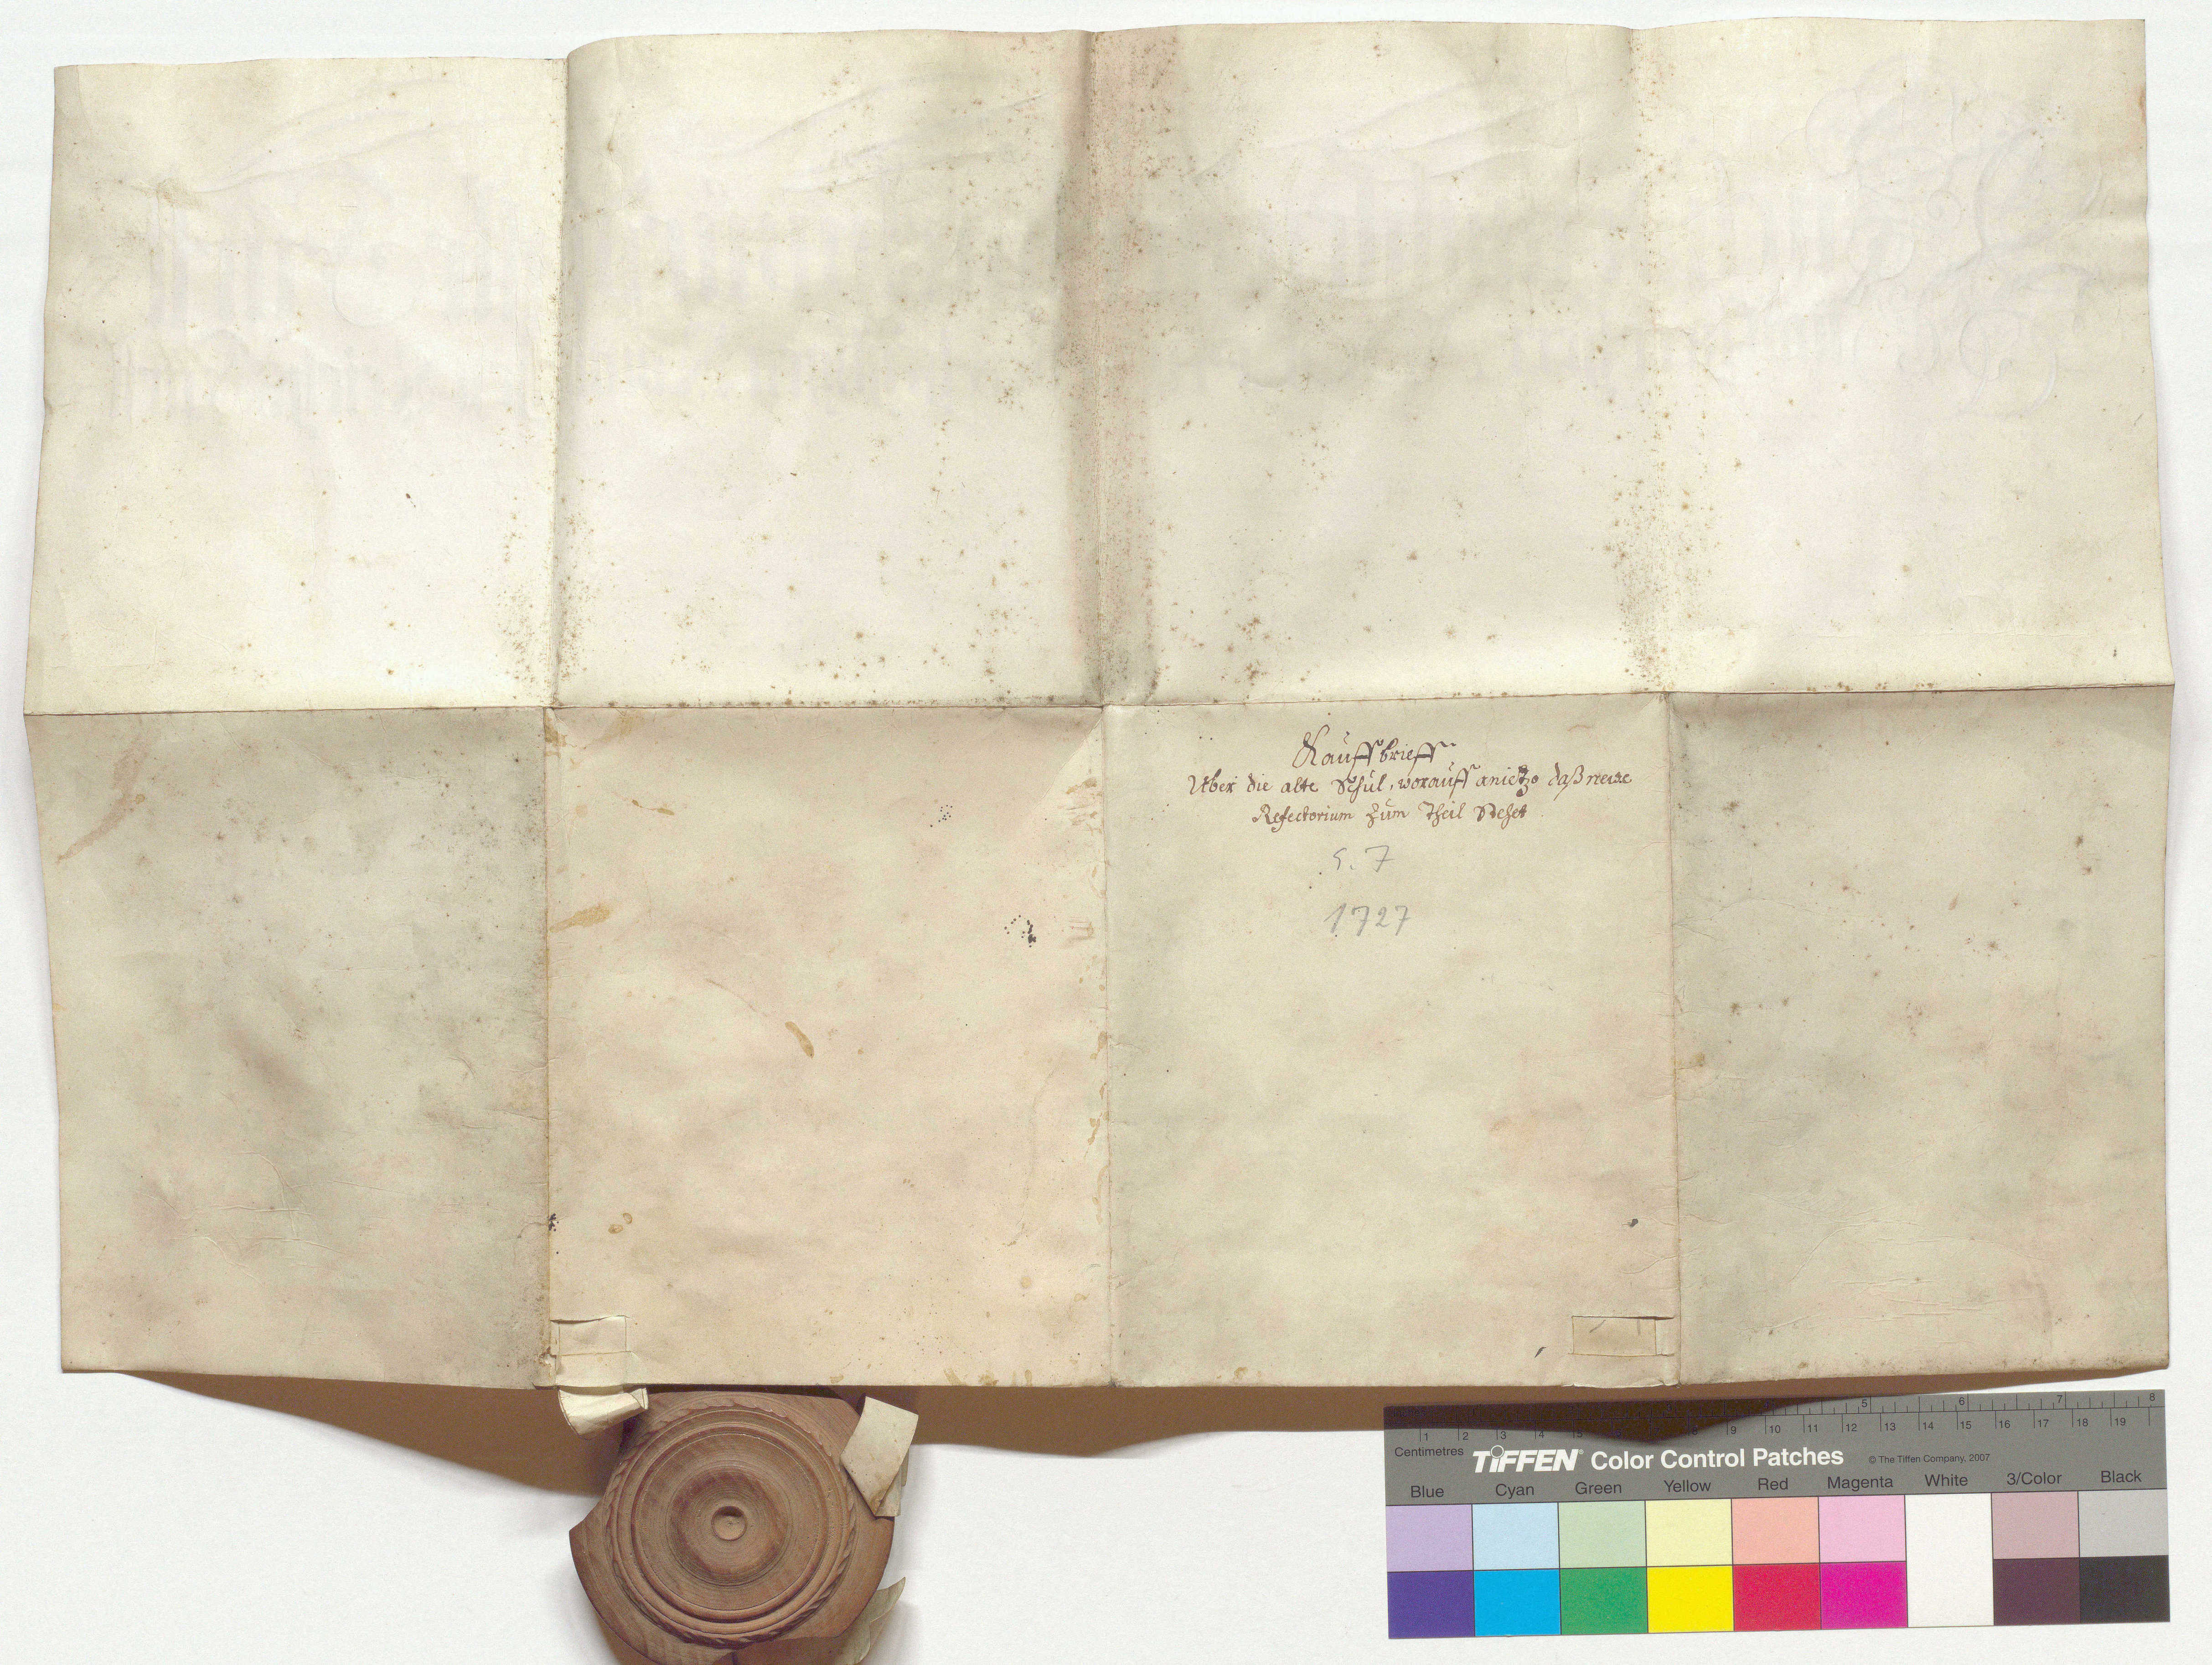 Kauffbrieff
Uber die alte Schul, worauff anietzo daß neue
Refectorium zum Theil Stehet
S. 7
1727
1 2 3 4 5 6 7 8
1 2 3 4 5 9 10 11 12 13 14 15 16 17 18 19
Centimetres
TIFFEN Color Control Patches © The Tiffen Company, 2007
Blue Cyan Green Yellow Red Magenta White 3/Color Black